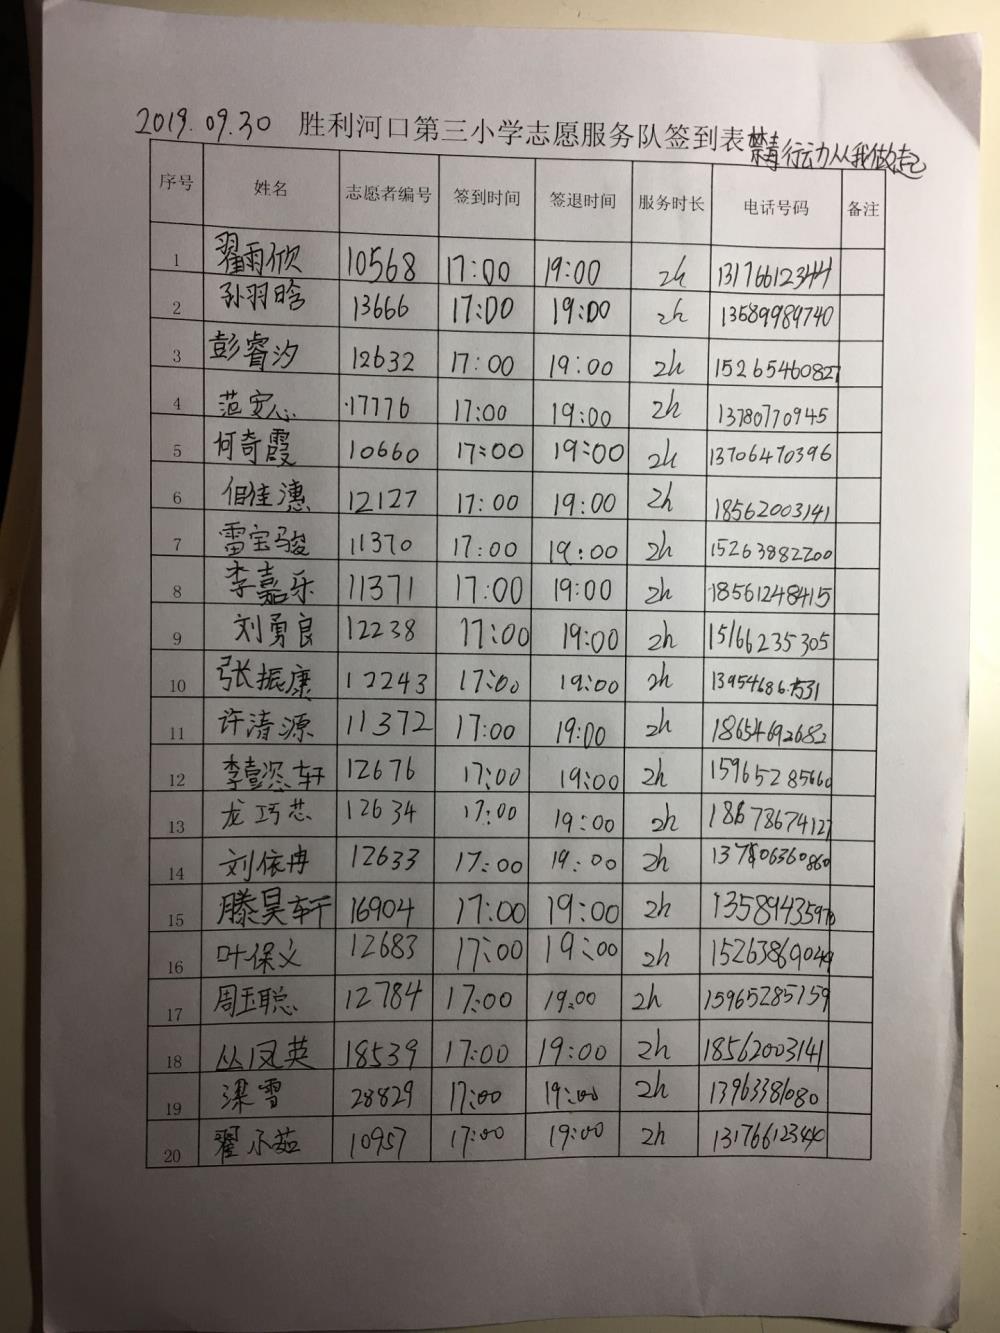 2019.09.30 胜利河口第三小学志愿服务队签到表 禁毒行动从我做起
序号 姓名 志愿者编号 签到时间 签退时间 服务时长 电话号码 备注
1 翟雨欣 10568 17:00 19:00 2h 13176612344
2 孙羽晗 13666 17:00 19:00 2h 13589989740
3 彭睿汐 12632 17:00 19:00 2h 15265460827
4 范安心 17776 17:00 19:00 2h 13780770945
5 何奇霞 10660 17:00 19:00 2h 13706470396
6 佀佳潓 12127 17:00 19:00 2h 18562003141
7 雷宝骏 11370 17:00 19:00 2h 15263882200
8 李嘉乐 11371 17:00 19:00 2h 18561248415
9 刘勇良 12238 17:00 19:00 2h 15166235305
10 张振康 12243 17:00 19:00 2h
11 许清源 11372 17:00 19:00 2h 18654692682
12 12676 17:00 19:00 2h 15965285660
13 龙巧芯 12634 17:00 19:00 2h 18678674127
14 刘依冉 12633 17:00 19:00 2h
15 滕昊轩 16904 17:00 19:00 2h 13589435970
16 叶保义 12683 17:00 19:00 2h 15263869049
17 周玉聪 12784 17:00 19:00 2h 15965285159
18 丛凤英 18539 17:00 19:00 2h 18562003141
19 梁雪 28829 17:00 19:00 2h 13963381080
20 翟小茹 10957 17:00 19:00 2h 13176612340